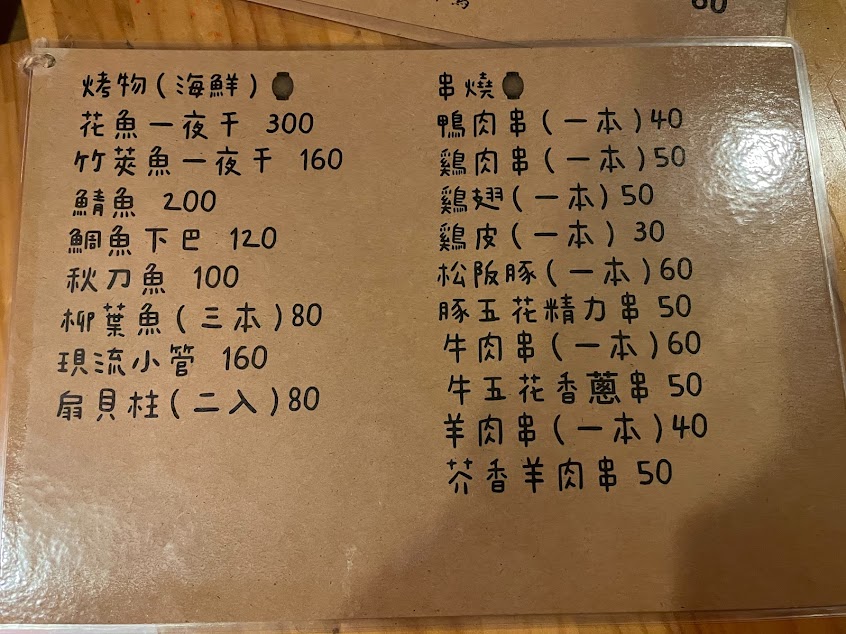 烤物(海鮮)
花魚一夜干 300
竹莢魚一夜干 160
鯖魚 200
鯛魚下巴 120
秋刀魚 100
柳葉魚(三本)80
現流小管 160
扇貝柱(二入)80
串燒
鴨肉串(一本)40
鷄肉串(一本)50
鷄翅(一本)50
鷄皮(一本) 30
松阪豚(一本)60
豚五花精力串 50
牛肉串(一本)60
牛五花香蔥串 50
羊肉串(一本)40
芥香羊肉串 50
60